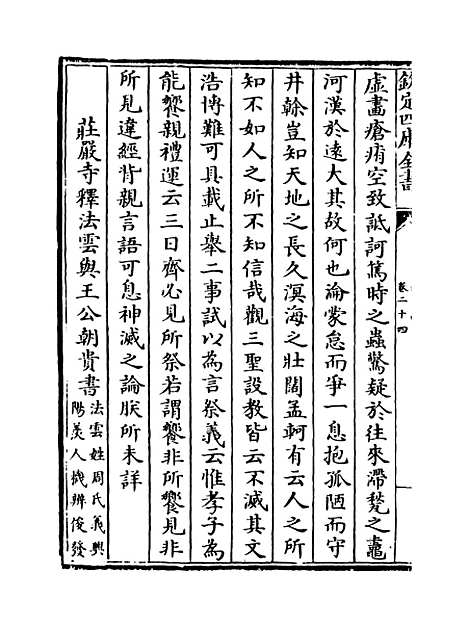 欽定四庫全書
卷二十四
虛畫瘡痏空致詆訶篤時之蟲驚疑於往來滯甃之鼃
河漢於遠大其故何也淪蒙怠而爭一息抱孤陋而守
井榦豈知天地之長久溟海之壯闊孟軻有云人之所
知不如人之所不知信哉觀三聖設教皆云不滅其文
浩博難可具載止舉二事試以為言祭義云惟孝子為
能饗親禮運云三日齊必見所祭若謂饗非所饗見非
所見違經背親言語可息神滅之論朕所未詳
莊嚴寺釋法雲與王公朝貴書
法雲姓周氏義興
陽羨人機辨俊發